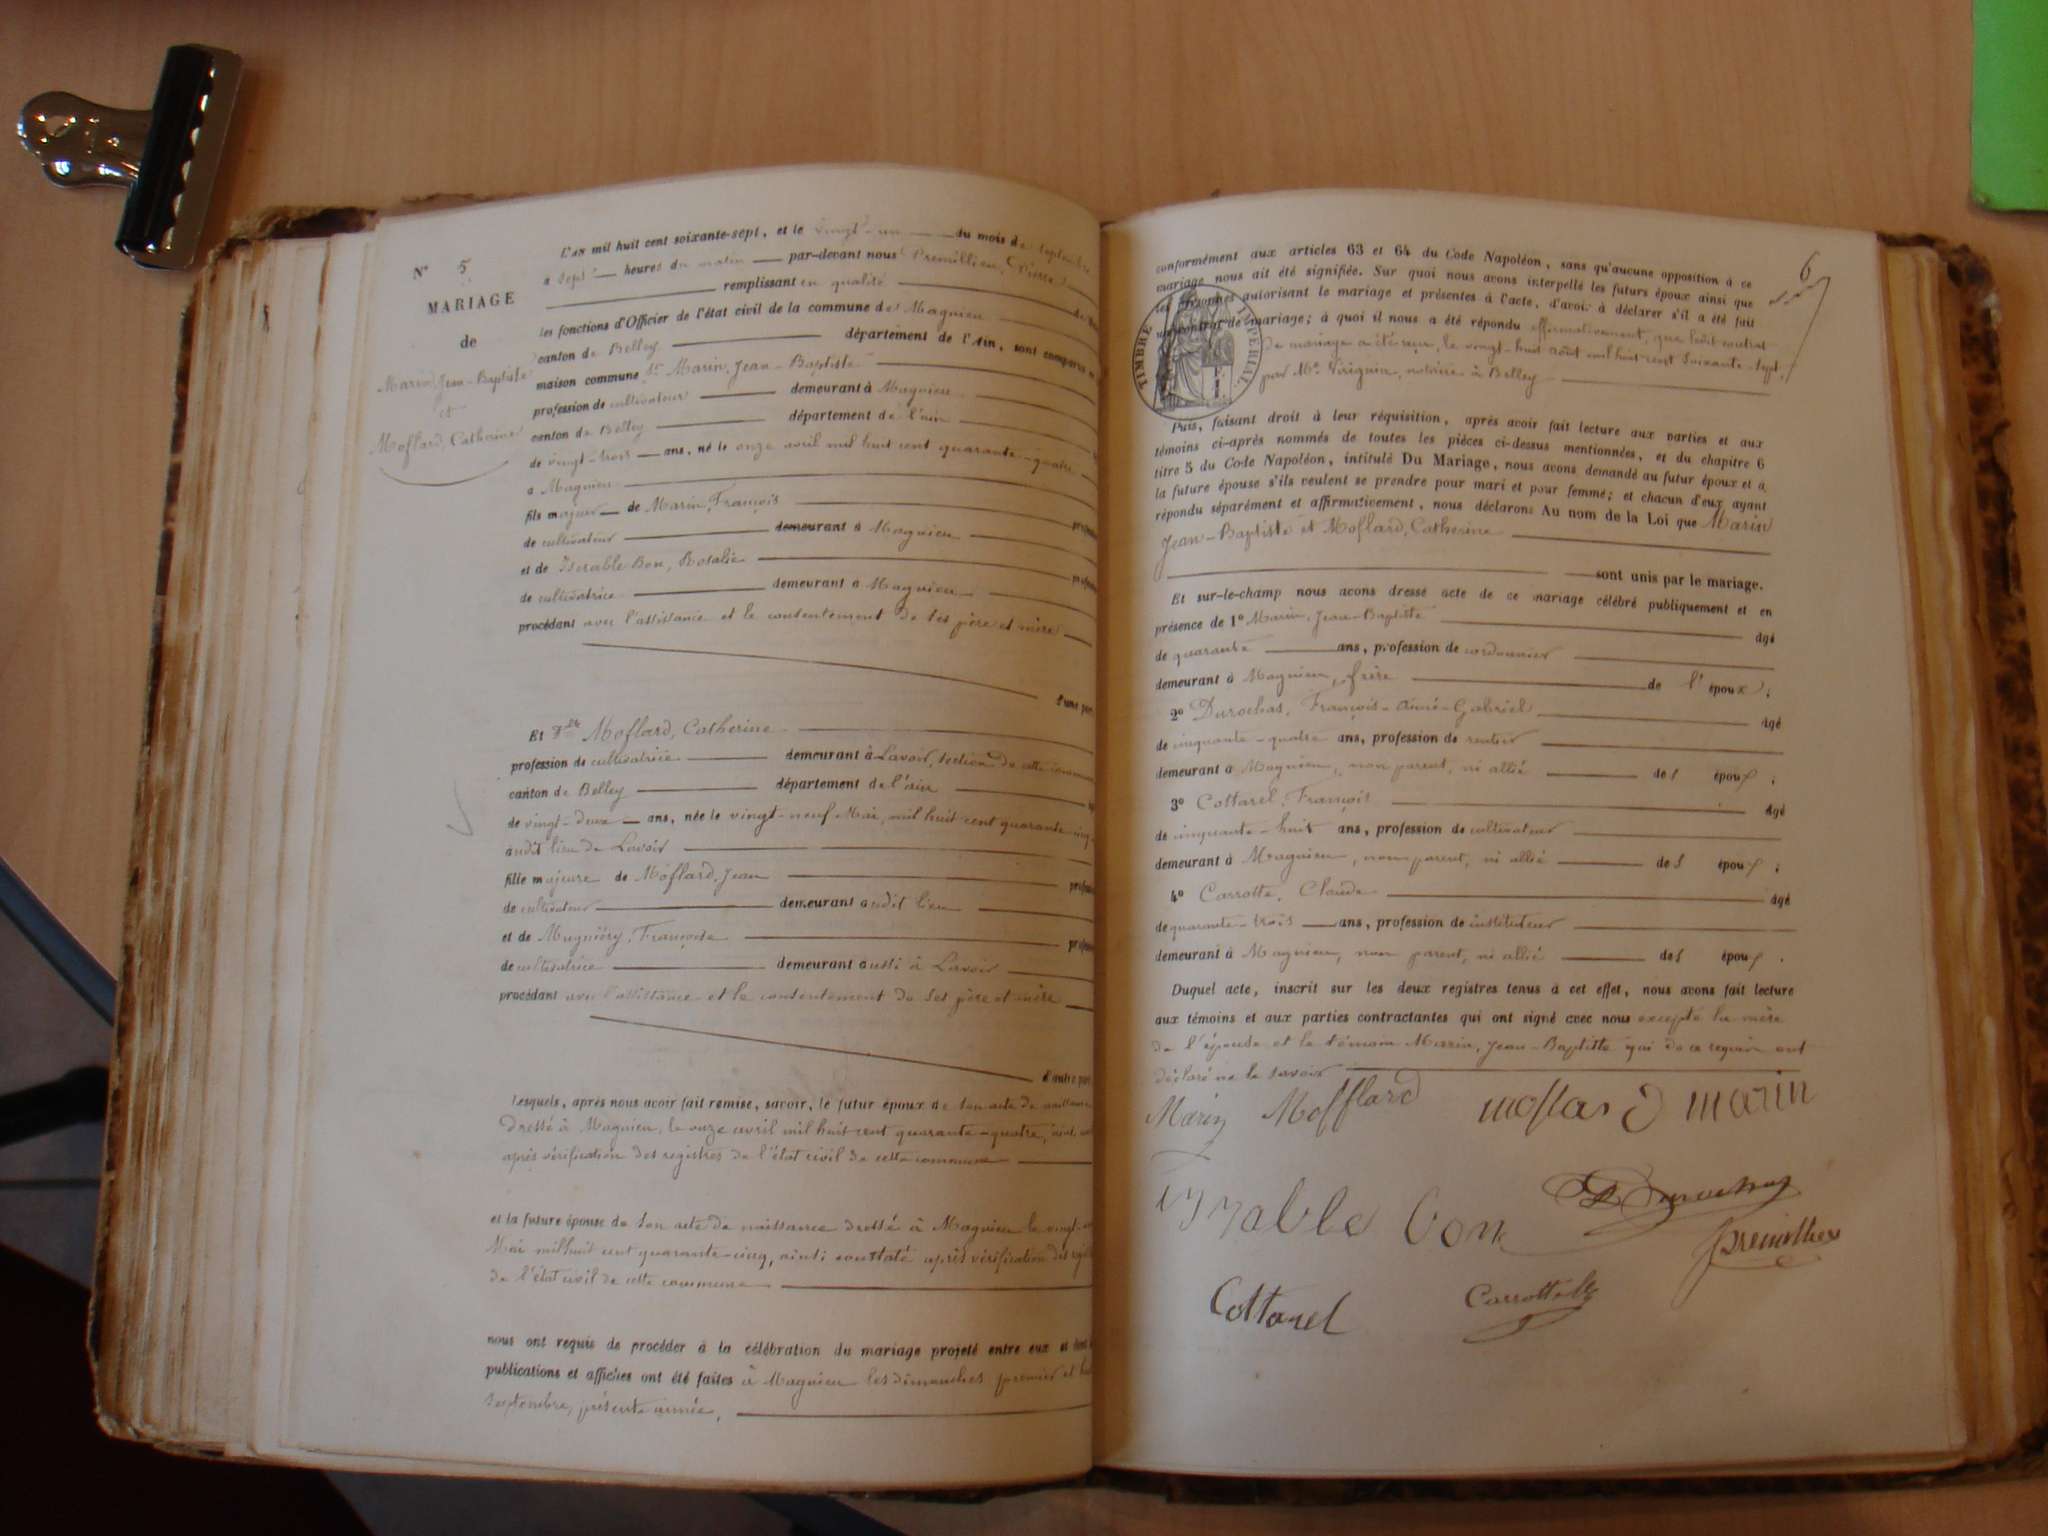 N° 5
MARIAGE
de
Marin, Jean-Baptiste
et
Moflard, Catherine
L'an mil huit cent soixante-sept, et le vingt-un du mois de septembre
à sept heures du matin par-devant nous Premillieu, Pierre
remplissant en qualité de
les fonctions d'Officier de l'état civil de la commune de Magnieu
canton de Belley département de l'Ain, sont comparus en
maison commune Sr Marin, Jean-Baptiste
profession de cultivateur demeurant à Magnieu
canton de Belley département de l'ain
de vingt-trois ans, né le onze avril mil huit cent quarante-quatre
à Magnieu
fils majeur de Marin, François
de cultivateur demeurant à Magnieu
et de Iserable Bon, Rosalie
de cultivatrice demeurant à Magnieu
procédant avec l'assistance et le consentement de ses père et mère
d'une part
Et Dlle Moflard, Catherine
profession de cultivatrice demeurant à Lavoir, section de cette commune
canton de Belley département de l'ain
de vingt-deux ans, née le vingt-neuf Mai, mil huit cent quarante-cinq
audit lieu de Lavoir
fille majeure de Moflard, Jean
de cultivateur demeurant audit lieu
et de Mugniéry, Françoise
de cultivatrice demeurant aussi à Lavoir
procédant avec l'assistance et le consentement de ses père et mère
d'autre part
Lesquels, après nous avoir fait remise, savoir, le futur époux de son acte de naissance
dressé à Magnieu, le onze avril mil huit cent quarante-quatre, ainsi
après vérification des registres de l'état civil de cette commune
et la future épouse de son acte de naissance dressé à Magnieu le vingt-
Mai mil huit cent quarante-cinq, ainsi constaté après vérification des
de l'état civil de cette commune
nous ont requis de procéder à la célébration du mariage projeté entre eux et dont
publications et affiches ont été faites à Magnieu les dimanches premier et
septembre, présente année,
6
conformément aux articles 63 et 64 du Code Napoléon, sans qu'aucune opposition à ce
mariage nous ait été signifiée. Sur quoi nous avons interpellé les futurs époux ainsi que
les personnes autorisant le mariage et présentes à l'acte, d'avoir à déclarer s'il a été fait
un contrat de mariage; à quoi il nous a été répondu affirmativement, que ledit contrat
de mariage a été reçu, le vingt-huit août mil huit cent soixante-sept,
par Me Goiguin, notaire à Belley
TIMBRE IMPÉRIAL
Puis, faisant droit à leur réquisition, après avoir fait lecture aux parties et aux
témoins ci-après nommés de toutes les pièces ci-dessus mentionnées, et du chapitre 6
titre 5 du Code Napoléon, intitulé Du Mariage, nous avons demandé au futur époux et à
la future épouse s'ils veulent se prendre pour mari et pour femme; et chacun d'eux ayant
répondu séparément et affirmativement, nous déclarons Au nom de la Loi que Marin
Jean-Baptiste et Moflard, Catherine
sont unis par le mariage.
Et sur-le-champ nous avons dressé acte de ce mariage célébré publiquement et en
présence de 1° Marin, Jean-Baptiste âgé
de quarante ans, profession de cordonnier
demeurant à Magnieu, frère de l'époux;
2° Durochas, François-Aimé-Gabriel âgé
de cinquante-quatre ans, profession de rentier
demeurant à Magnieu, non parent, ni allié des époux;
3° Cottarel, François âgé
de cinquante-huit ans, profession de cultivateur
demeurant à Magnieu, non parent, ni allié des époux;
4° Carrotte, Claude âgé
de quarante-trois ans, profession de instituteur
demeurant à Magnieu, non parent, ni allié des époux.
Duquel acte, inscrit sur les deux registres tenus à cet effet, nous avons fait lecture
aux témoins et aux parties contractantes qui ont signé avec nous excepté la mère
de l'épouse et le témoin Marin, Jean-Baptiste qui de ce requis ont
déclaré ne le savoir
Marin Mofflard moflard marin
yzrable bon Durochas
Premillieu
Cottarel Carrotte